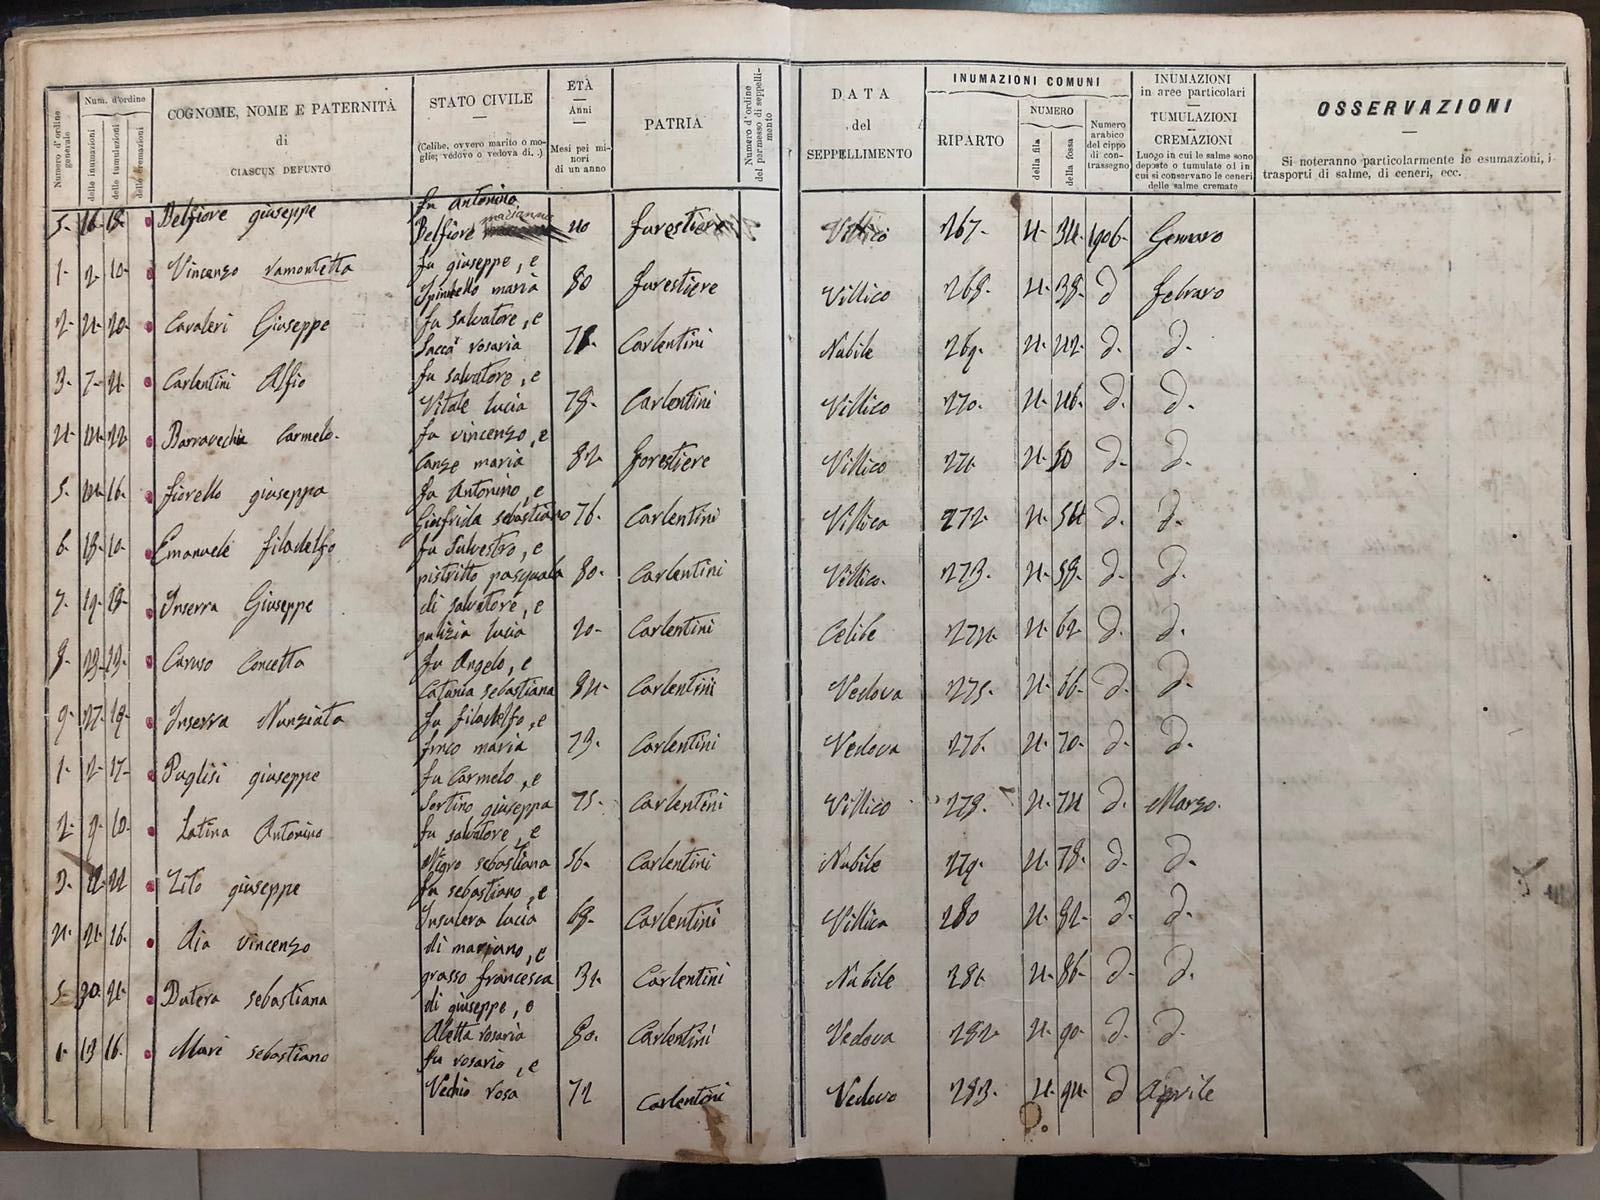 Numero d'ordine generale
Num. d'ordine
delle inumazioni
delle tumulazioni
delle cremazioni
COGNOME, NOME E PATERNITÀ
di
CIASCUN DEFUNTO
STATO CIVILE
(Celibe, ovvero marito o moglie; vedovo o vedova di. .)
ETÀ
Anni
Mesi pei minori di un anno
PATRIA
Numero d'ordine del permesso di seppellimento
DATA
del
SEPPELLIMENTO
INUMAZIONI COMUNI
RIPARTO
NUMERO
della fila
della fossa
Numero arabico del cippo di contrassegno
INUMAZIONI
in aree particolari
TUMULAZIONI
CREMAZIONI
Luogo in cui le salme sono deposte o tumulate ol in cui si conservano le ceneri delle salme cremate
OSSERVAZIONI
Si noteranno particolarmente le esumazioni, i trasporti di salme, di ceneri, ecc.
fu Antonino
5- 16- 18- Belfiore giuseppe Belfiore marianna 40 furestiere Villico 267- 4- 34- 1906- Genaro
fu giuseppe, e
1- 2- 10- Vincenzo ramontetta Spinello maria 80 furestiere Villico 268- 4- 38- d febraro
fu salvatore, e
2- 4- 20- Cavaleri Giuseppe Saccà rosaria Carlentini Nubile 269- 4- 42- d. d.
fu salvatore, e
3- 7- 4- Carlentini Alfio Vitale lucia 78- Carlentini Villico 270- 4- 46- d. d.
fu vincenzo, e
4- 22- Barravechia Carmelo- Canze maria 82- forestiere Villico 271 4- 50 d. d.
fu Antonino, e
5- 16- fiorello giuseppa Giufrida sebastiano 76- Carlentini Villica 272- 4- 54 d. d.
fu Silvestro, e
6- 18- 10- Emanuele filadelfo pistritto pasquala 80- Carlentini Villico- 273- 4- 58- d. d.
di salvatore, e
7- 19- 18- Inserra Giuseppe galizia lucia 20- Carlentini Celibe 274- 4- 62- d. d.
fu Angelo, e
8- 23- 23- Caruso Concetta Catania sebastiana 84- Carlentini Vedova 275- 4- 66- d. d.
fu filadelfo, e
9- 27- 19- Inserra Nunziata furco maria 73- Carlentini Vedova 276- 4- 70- d. d.
fu Carmelo, e
1- 2- 17- Puglisi giuseppe Sortino giuseppa 75- Carlentini Villico 278- 4- 74 d. Marzo.
fu salvatore, e
2- 9- 10- Latina Antonino Nigro sebastiana 56- Carlentini Nubile 279- 4- 78- d. d.
fu sebastiano, e
3- 12- 22 Zito giuseppe Insulera lucia 68- Carlentini Villica 280 4- 82- d. d.
di mariano, e
4- 21- 16- Aia vincenzo grasso francesca 31- Carlentini Nubile 281- 4- 86- d. d.
di giuseppe, e
5- 30- 21- Butera sebastiana Aletta rosaria 80. Carlentini Vedova 282 4- 90- d d.
fu rosario, e
1- 13 16- Mari sebastiano Vechio rosa 72 Carlentini Vedovo 283- 4- 94- d Aprile